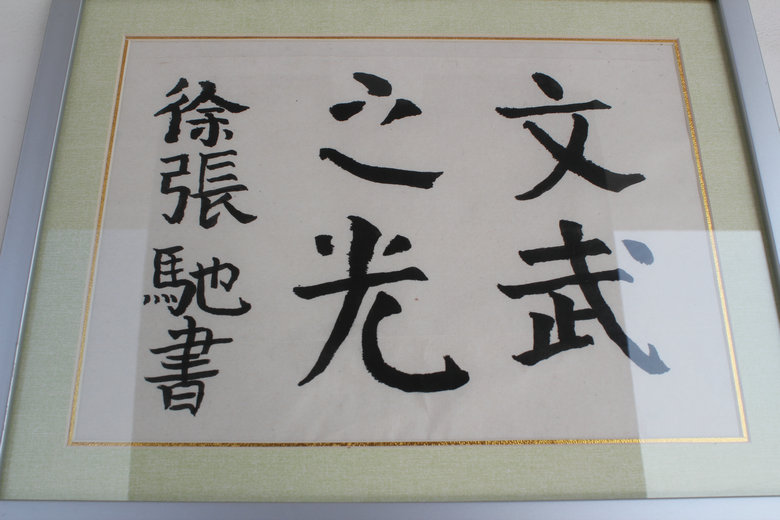 文武
之光
徐張馳書